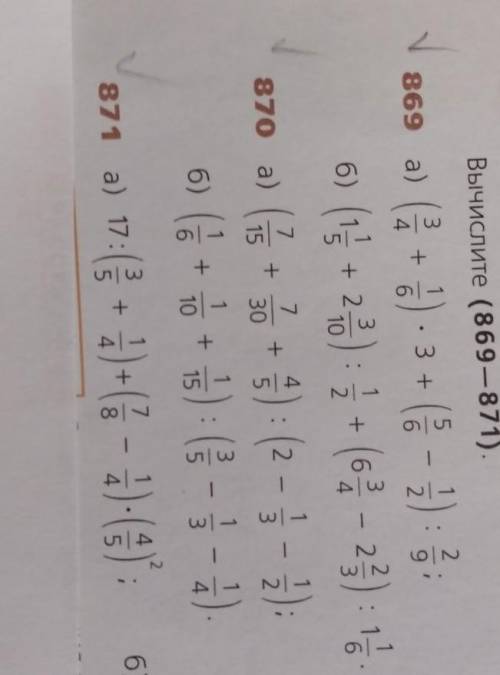 Вычислите (869—871).
869 а) (3/4 + 1/6) · 3 + (5/6 − 1/2) : 2/9;
б) (1 1/5 + 2 3/10) : 1/2 + (6 3/4 − 2 2/3) : 1 1/6.
870 а) (7/15 + 7/30 + 4/5) : (2 − 1/3 − 1/2);
б) (1/6 + 1/10 + 1/15) : (3/5 − 1/3 − 1/4).
871 а) 17 : (3/5 + 1/4) + (7/8 − 1/4) · (4/5)²;
б)